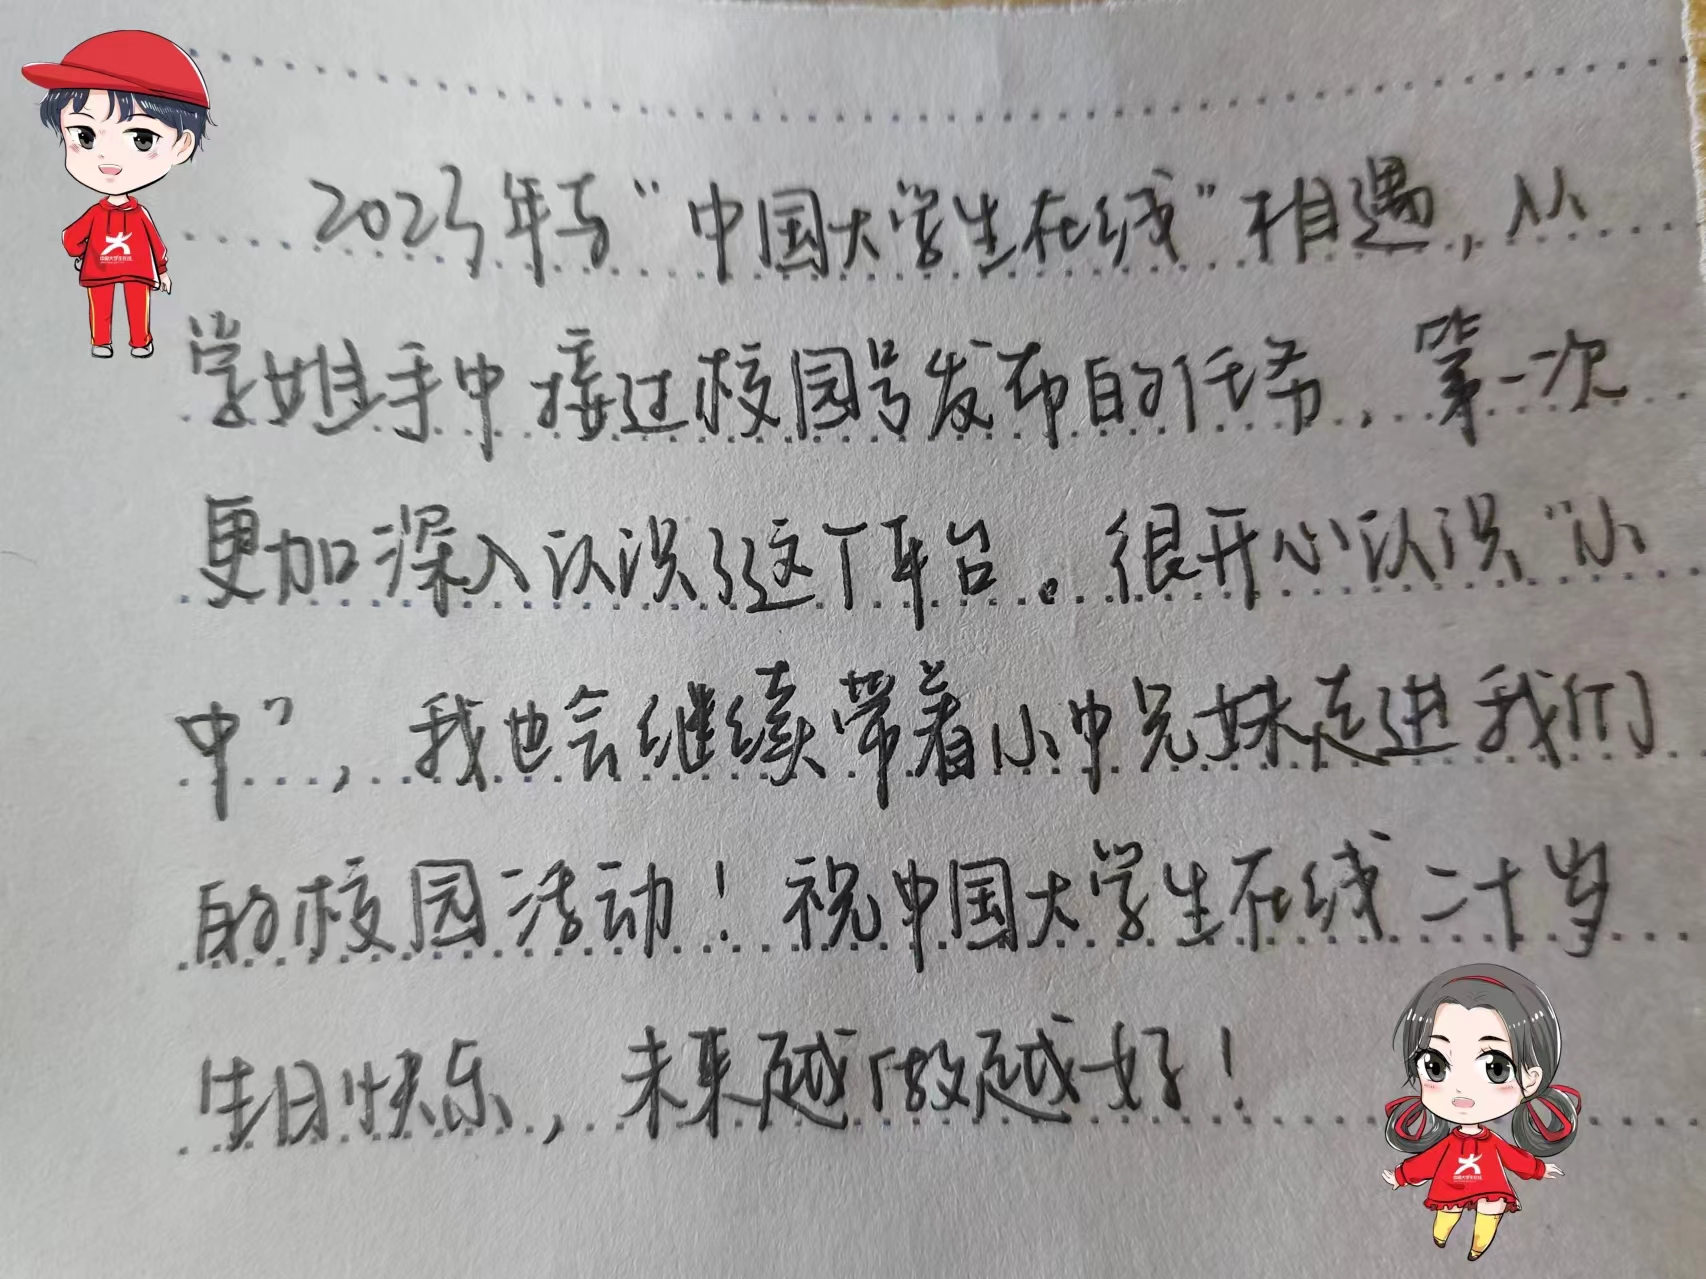 2023年与“中国大学生在线”相遇，从
学姐手中接过校园号发布的任务，第一次
更加深入认识了这个平台。很开心认识“小
中”，我也会继续带着小中兄妹走进我们
的校园活动！祝中国大学生在线二十岁
生日快乐，未来越做越好！
中国大学生在线
中国大学生在线